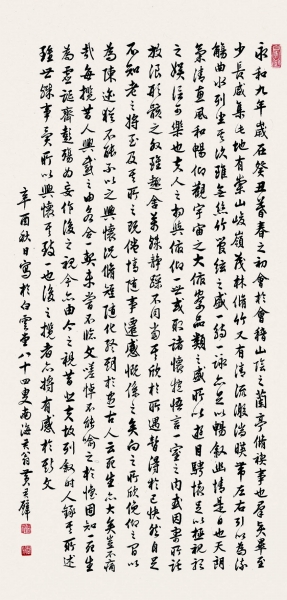 永和九年歲在癸丑暮春之初會於會稽山陰之蘭亭脩禊事也群賢畢至
少長咸集此地有崇山峻嶺茂林脩竹又有清流激湍映帶左右引以為流
觴曲水列坐其次雖無絲竹管絃之盛一觴一詠亦足以暢敘幽情是日也天朗
氣清惠風和暢仰觀宇宙之大俯察品類之盛所以遊目騁懷足以極視聽
之娛信可樂也夫人之相與俯仰一世或取諸懷抱悟言一室之內或因寄所託
放浪形骸之外雖趣舍萬殊靜躁不同當其欣於所遇暫得於己快然自足
不知老之將至及其所之既倦情隨事遷感慨係之矣向之所欣俛仰之間以
為陳迹猶不能不以之興懷況脩短隨化終期於盡古人云死生亦大矣豈不痛
哉每攬昔人興感之由若合一契未嘗不臨文嗟悼不能喻之於懷固知一死生
為虛誕齊彭殤為妄作後之視今亦由今之視昔悲夫故列敘時人錄其所述
雖世殊事異所以興懷其致一也後之攬者亦將有感於斯文
辛酉秋日寫於白雲堂八十四叟南海天翁黃君璧